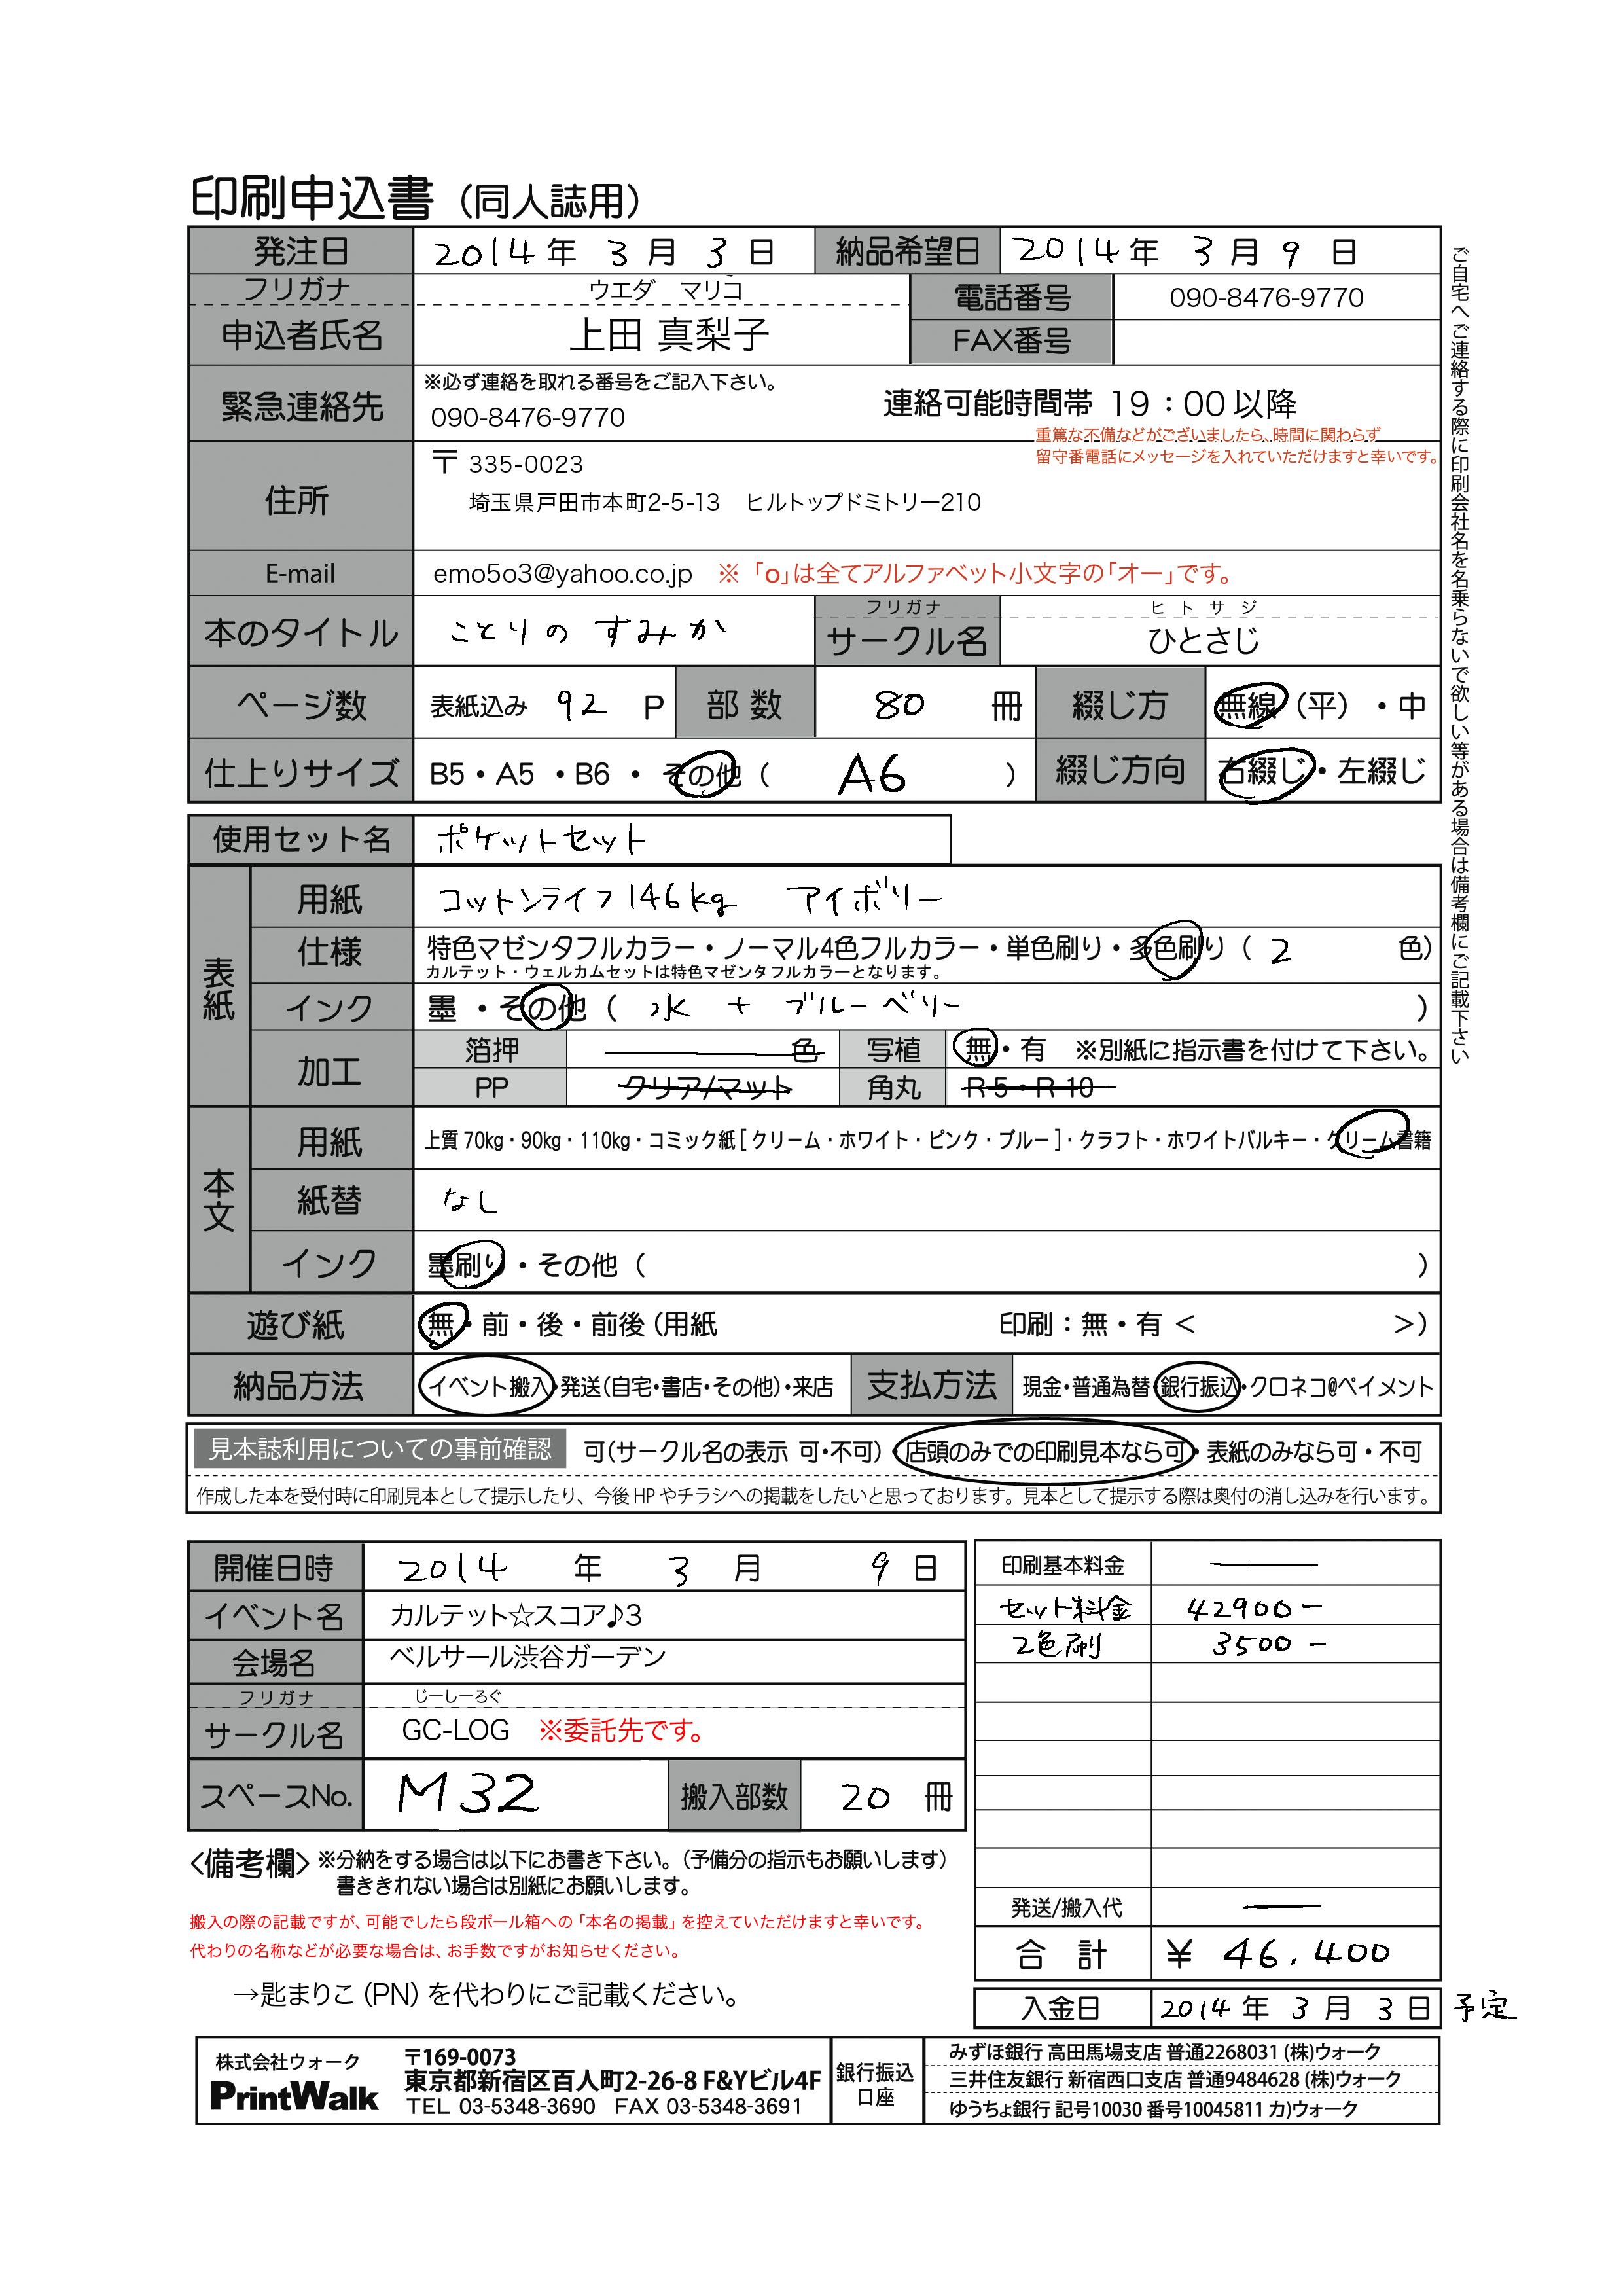 印刷申込書（同人誌用）
発注日 2014年 3月 3日 納品希望日 2014年 3月 9日
フリガナ ウエダ マリコ 電話番号 090-8476-9770
申込者氏名 上田 真梨子 FAX番号
緊急連絡先 ※必ず連絡を取れる番号をご記入下さい。
090-8476-9770 連絡可能時間帯 19：00以降
重篤な不備などがございましたら、時間に関わらず
留守番電話にメッセージを入れていただけますと幸いです。
住所 〒 335-0023
埼玉県戸田市本町2-5-13 ヒルトップドミトリー210
E-mail emo5o3@yahoo.co.jp ※「o」は全てアルファベット小文字の「オー」です。
本のタイトル ことりの すみか フリガナ ヒトサジ
サークル名 ひとさじ
ページ数 表紙込み 92 P 部数 80 冊 綴じ方 無線（平）・中
仕上りサイズ B5・A5・B6・その他（ A6 ） 綴じ方向 右綴じ・左綴じ
ご自宅へご連絡する際に印刷会社名を名乗らないで欲しい等がある場合は備考欄にご記載下さい
使用セット名 ポケットセット
表紙
用紙 コットンライフ 146kg アイボリー
仕様 特色マゼンタフルカラー・ノーマル4色フルカラー・単色刷り・多色刷り（ 2 色）
カルテット・ウェルカムセットは特色マゼンタフルカラーとなります。
インク 墨・その他（ 水 + ブルーベリー ）
加工 箔押 色 写植 無・有 ※別紙に指示書を付けて下さい。
PP クリア/マット 角丸 R5・R10
本文
用紙 上質 70kg・90kg・110kg・コミック紙［クリーム・ホワイト・ピンク・ブルー］・クラフト・ホワイトバルキー・クリーム書籍
紙替 なし
インク 墨刷り・その他（ ）
遊び紙 無・前・後・前後（用紙 印刷：無・有＜ ＞）
納品方法 イベント搬入・発送（自宅・書店・その他）・来店 支払方法 現金・普通為替・銀行振込・クロネコ@ペイメント
見本誌利用についての事前確認 可（サークル名の表示 可・不可）・店頭のみでの印刷見本なら可・表紙のみなら可・不可
作成した本を受付時に印刷見本として提示したり、今後HPやチラシへの掲載をしたいと思っております。見本として提示する際は奥付の消し込みを行います。
開催日時 2014 年 3 月 9 日
イベント名 カルテット☆スコア♪3
会場名 ベルサール渋谷ガーデン
フリガナ じーしーろぐ
サークル名 GC-LOG ※委託先です。
スペースNo. M32 搬入部数 20 冊
印刷基本料金
セット料金 42900−
2色刷 3500−
発送/搬入代
合 計 ¥ 46.400
入金日 2014年 3月 3日 予定
〈備考欄〉※分納をする場合は以下にお書き下さい。（予備分の指示もお願いします）
書ききれない場合は別紙にお願いします。
搬入の際の記載ですが、可能でしたら段ボール箱への「本名の掲載」を控えていただけますと幸いです。
代わりの名称などが必要な場合は、お手数ですがお知らせください。
→匙まりこ（PN）を代わりにご記載ください。
株式会社ウォーク
PrintWalk
〒169-0073
東京都新宿区百人町2-26-8 F&Yビル4F
TEL 03-5348-3690 FAX 03-5348-3691
銀行振込口座
みずほ銀行 高田馬場支店 普通2268031 (株)ウォーク
三井住友銀行 新宿西口支店 普通9484628 (株)ウォーク
ゆうちょ銀行 記号10030 番号10045811 カ)ウォーク